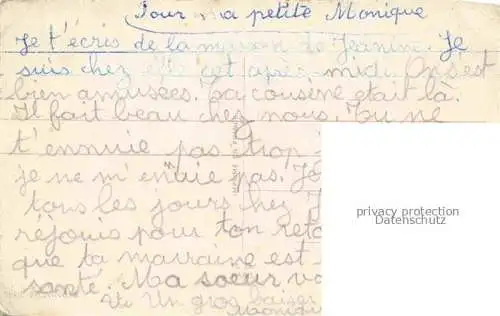 Pour ma petite Monique
Je t'écris de la maison de Jeanine. Je
suis chez elle cet après-midi. On s'est
bien amusées. Ta cousine était là.
Il fait beau chez nous. Tu ne
t'ennuie pas trop
je ne m'ennuie pas. Je
tous les jours chez J
réjouis pour ton reto
que ta marraine est
santé. Ma soeur va
Un gros baiser
Monique
privacy protection
Datenschutz